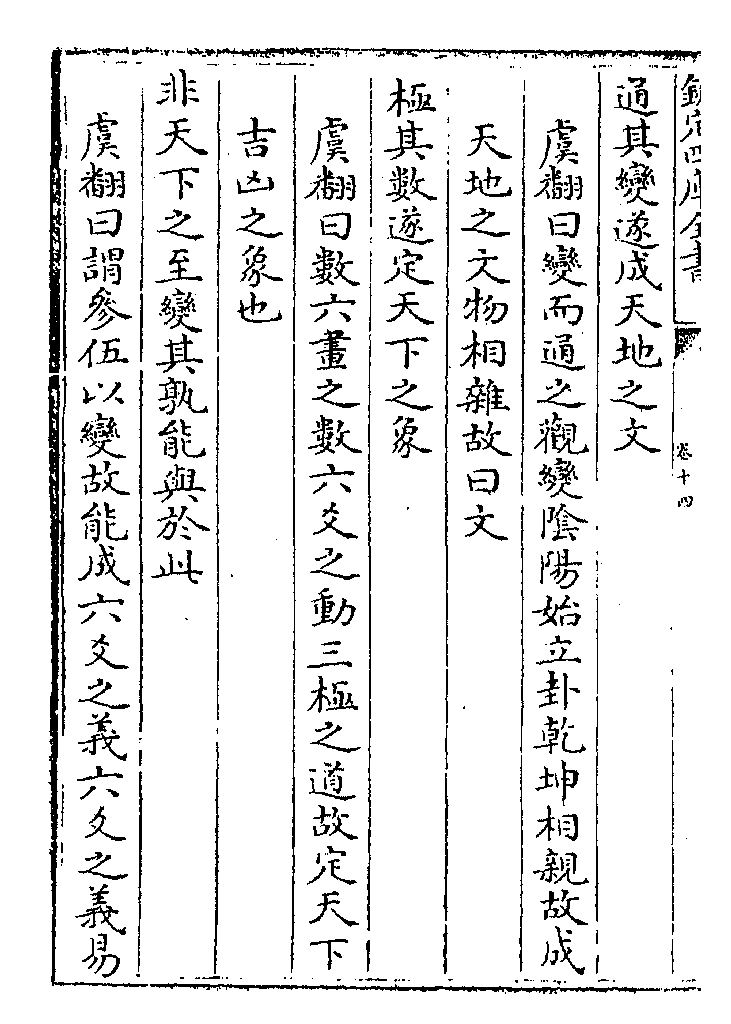 欽定四庫全書
卷十四
通其變遂成天地之文
虞翻曰變而通之觀變陰陽始立卦乾坤相親故成
天地之文物相雜故曰文
極其數遂定天下之象
虞翻曰數六畫之數六爻之動三極之道故定天下
吉凶之象也
非天下之至變其孰能與於此
虞翻曰謂參伍以變故能成六爻之義六爻之義易